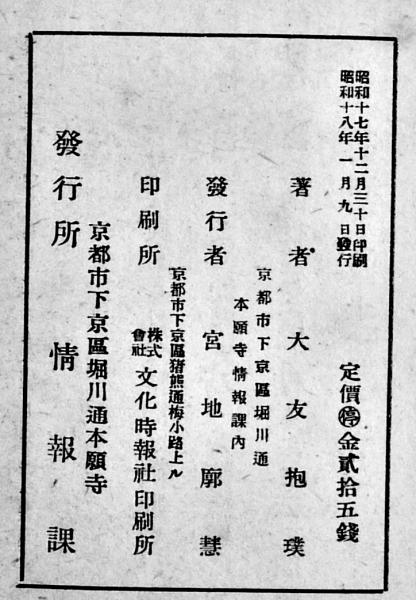 昭和十七年十二月三十日印刷
昭和十八年一月九日發行
定價㊡金貳拾五錢
著者 大友抱璞
京都市下京區堀川通
本願寺情報課內
發行者 宮地廓慧
京都市下京區猪熊通梅小路上ル
印刷所 株式會社 文化時報社印刷所
京都市下京區堀川通本願寺
發行所 情報課